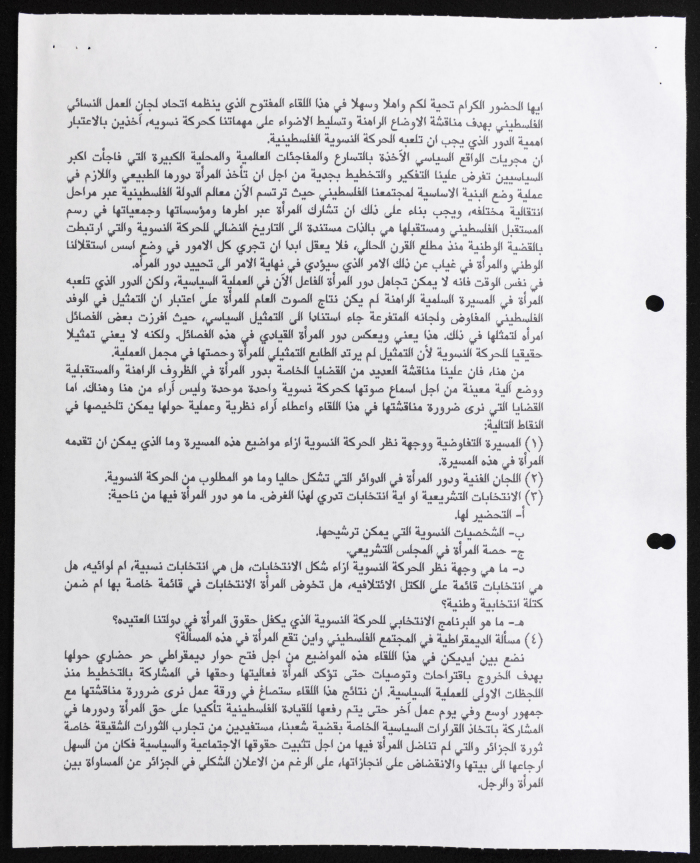 ايها الحضور الكرام تحية لكم واهلا وسهلا في هذا اللقاء المفتوح الذي ينظمه اتحاد لجان العمل النسائي
الفلسطيني بهدف مناقشة الاوضاع الراهنة وتسليط الاضواء على مهماتنا كحركة نسويه، آخذين بالاعتبار
اهمية الدور الذي يجب ان تلعبه الحركة النسوية الفلسطينية.
ان مجريات الواقع السياسي الآخذة بالتسارع والمفاجئات العالمية والمحلية الكبيرة التي فاجأت اكبر
السياسيين تفرض علينا التفكير والتخطيط بجدية من اجل ان تأخذ المرأة دورها الطبيعي واللازم في
عملية وضع البنية الاساسية لمجتمعنا الفلسطيني حيث ترتسم الآن معالم الدولة الفلسطينية عبر مراحل
انتقالية مختلفه، ويجب بناء على ذلك ان تشارك المرأة عبر اطرها ومؤسساتها وجمعياتها في رسم
المستقبل الفلسطيني ومستقبلها هي بالذات مستندة الى التاريخ النضالي للحركة النسوية والتي ارتبطت
بالقضية الوطنية منذ مطلع القرن الحالي، فلا يعقل ابدا ان تجري كل الامور في وضع اسس استقلالنا
الوطني والمرأة في غياب عن ذلك الامر الذي سيؤدي في نهاية الامر الى تحييد دور المرأه.
في نفس الوقت فانه لا يمكن تجاهل دور المرأة الفاعل الآن في العملية السياسية، ولكن الدور الذي تلعبه
المرأة في المسيرة السلمية الراهنة لم يكن نتاج الصوت العام للمرأة على اعتبار ان التمثيل في الوفد
الفلسطيني المفاوض ولجانه المتفرعة جاء استنادا الى التمثيل السياسي، حيث افرزت بعض الفصائل
امرأه لتمثلها في ذلك. هذا يعني ويعكس دور المرأة القيادي في هذه الفصائل. ولكنه لا يعني تمثيلا
حقيقيا للحركة النسوية لأن التمثيل لم يرتد الطابع التمثيلي للمرأة وحصتها في مجمل العملية.
من هنا، فان علينا مناقشة العديد من القضايا الخاصة بدور المرأة في الظروف الراهنة والمستقبلية
ووضع آلية معينة من اجل اسماع صوتها كحركة نسوية واحدة موحدة وليس آراء من هنا وهناك. اما
القضايا التي نرى ضرورة مناقشتها في هذا اللقاء واعطاء آراء نظرية وعملية حولها يمكن تلخيصها في
النقاط التالية:
(١) المسيرة التفاوضية ووجهة نظر الحركة النسوية ازاء مواضيع هذه المسيرة وما الذي يمكن ان تقدمه
المرأة في هذه المسيرة.
(٢) اللجان الفنية ودور المرأة في الدوائر التي تشكل حاليا وما هو المطلوب من الحركة النسوية.
(٣) الانتخابات التشريعية او اية انتخابات تدري لهذا الغرض. ما هو دور المرأة فيها من ناحية:
أ- التحضير لها.
ب- الشخصيات النسوية التي يمكن ترشيحها.
ج- حصة المرأة في المجلس التشريعي.
د- ما هي وجهة نظر الحركة النسوية ازاء شكل الانتخابات، هل هي انتخابات نسبية، ام لوائيه، هل
هي انتخابات قائمة على الكتل الائتلافيه، هل تخوض المرأة الانتخابات في قائمة خاصة بها ام ضمن
كتلة انتخابية وطنية؟
هـ- ما هو البرنامج الانتخابي للحركة النسوية الذي يكفل حقوق المرأة في دولتنا العتيده؟
(٤) مسألة الديمقراطية في المجتمع الفلسطيني واين تقع المرأة في هذه المسألة؟
نضع بين ايديكن في هذا اللقاء هذه المواضيع من اجل فتح حوار ديمقراطي حر حضاري حولها
بهدف الخروج باقتراحات وتوصيات حتى تؤكد المرأة فعاليتها وحقها في المشاركة بالتخطيط منذ
اللحظات الاولى للعملية السياسية. ان نتائج هذا اللقاء ستصاغ في ورقة عمل نرى ضرورة مناقشتها مع
جمهور اوسع وفي يوم عمل آخر حتى يتم رفعها للقيادة الفلسطينية تأكيدا على حق المرأة ودورها في
المشاركة باتخاذ القرارات السياسية الخاصة بقضية شعبنا، مستفيدين من تجارب الثورات الشقيقة خاصة
ثورة الجزائر والتي لم تناضل المرأة فيها من اجل تثبيت حقوقها الاجتماعية والسياسية فكان من السهل
ارجاعها الى بيتها والانقضاض على انجازاتها، على الرغم من الاعلان الشكلي في الجزائر عن المساواة بين
المرأة والرجل.